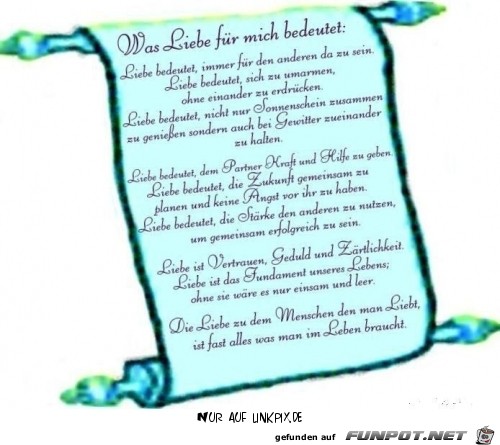 Was Liebe für mich bedeutet:
Liebe bedeutet, immer für den anderen da zu sein.
Liebe bedeutet, sich zu umarmen,
ohne einander zu erdrücken.
Liebe bedeutet, nicht nur Sonnenschein zusammen
zu genießen sondern auch bei Gewitter zueinander
zu halten.
Liebe bedeutet, dem Partner Kraft und Hilfe zu geben.
Liebe bedeutet, die Zukunft gemeinsam zu
planen und keine Angst vor ihr zu haben.
Liebe bedeutet, die Stärke den anderen zu nutzen,
um gemeinsam erfolgreich zu sein.
Liebe ist Vertrauen, Geduld und Zärtlichkeit.
Liebe ist das Fundament unseres Lebens;
ohne sie wäre es nur einsam und leer.
Die Liebe zu dem Menschen den man Liebt,
ist fast alles was man im Leben braucht.
NUR AUF LINKPIX.DE
gefunden auf FUNPOT.NET